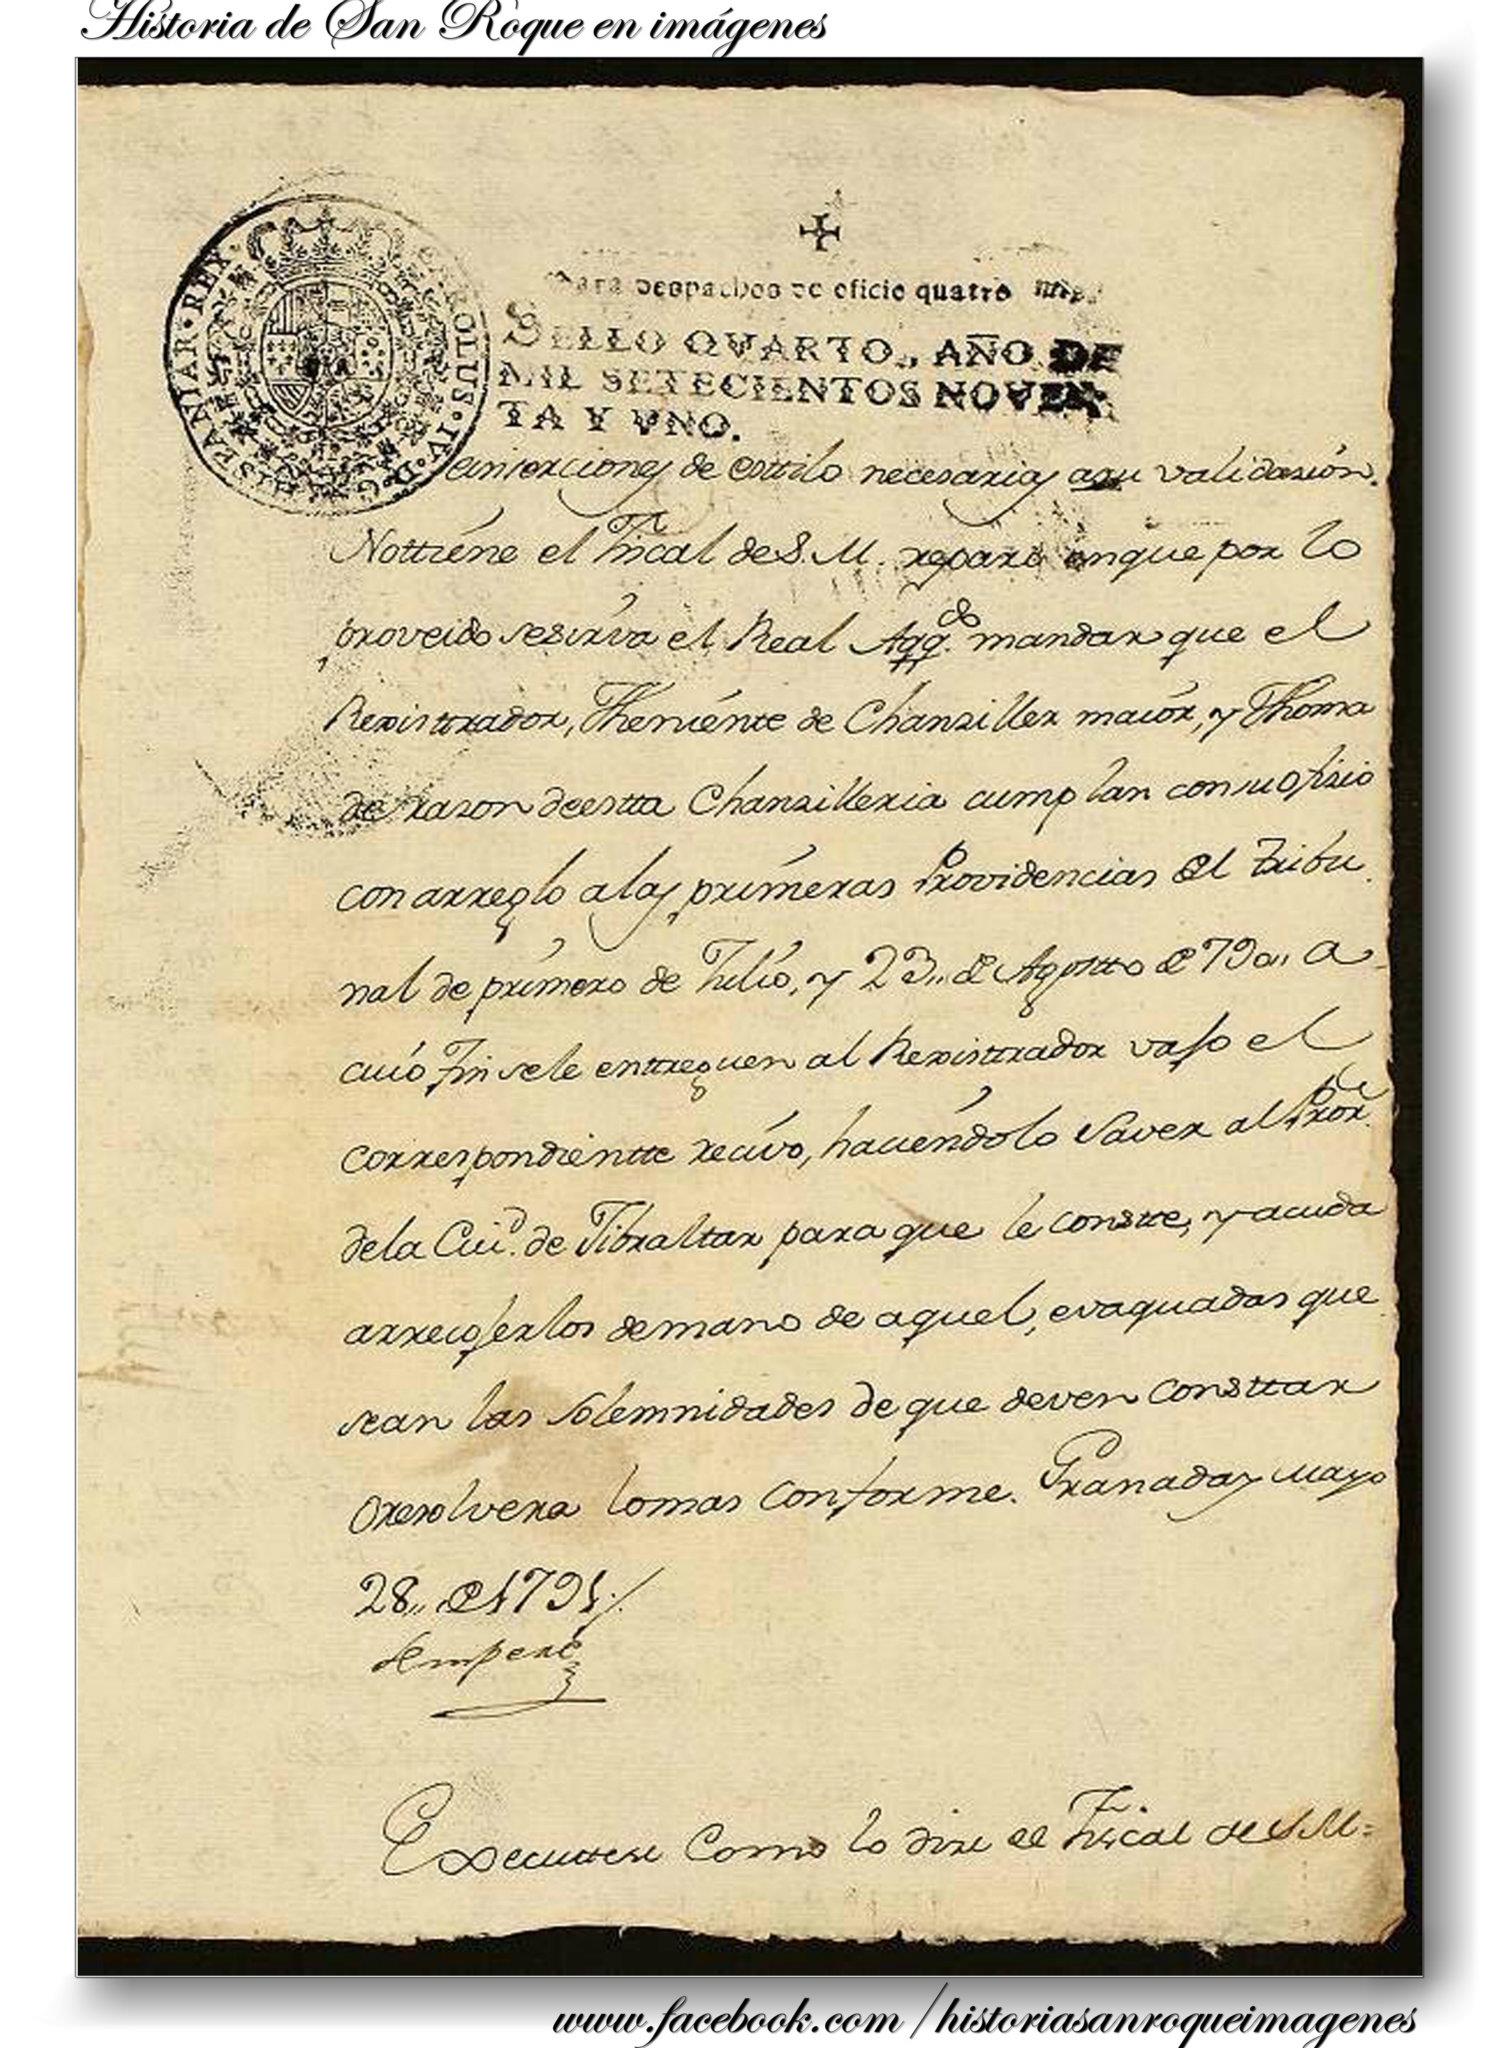 Historia de San Roque en imágenes
CAROLUS · IV · D · G · HISPANIAR · REX ·
Para despachos de oficio quatro mrs.
SELLO QVARTO, AÑO DE
MIL SETECIENTOS NOVEN
TA Y VNO.
einserciones de esttilo necesarias asu validasión.
Nottiene el Fiscal de S. M. reparo enque por lo
proveido sesirva el Real Aqq.do mandar que el
Rexisttrador, Theniente de Chansiller maior, y Thoma
de rason deestta Chansilleria cumplan consuofisio
con arreglo alas primeras Providencias del Tribu
nal de primero de Julio, y 23,, de Agostto de 790,, a
cuio fin sele enttreguen al Rexisttrador vajo el
correspondientte recivo, haciéndolo saver al Pror.
dela Ciud. de Gibraltar para que le constte, y acuda
arrecojerlos demano de aquel, evaquadas que
sean las solemnidades de que deven consttar
oresolvera lomas conforme. Granada y Mayo
28,, de 1791 /.
Sempere
Executtese como lo dise el Fiscal de S. M.
www.facebook.com/historiasanroqueimagenes